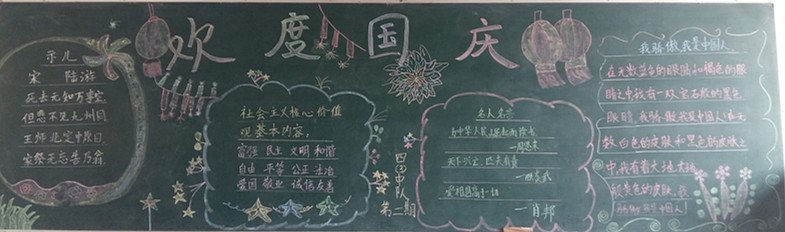 欢度国庆
示儿
宋 陆游
死去元知万事空
但悲不见九州同
王师北定中原日
家祭无忘告乃翁
社会主义核心价值
观基本内容:
富强 民主 文明 和谐
自由 平等 公正 法治
爱国 敬业 诚信 友善
四(3)中队
第二期
名人名言
为中华人民崛起而读书
—周恩来
天下兴亡,匹夫有责
—顾炎武
爱祖国高于一切
—肖邦
我骄傲我是中国人
在无数蓝色的眼睛和褐色的眼
睛之中我有一双宝石般的黑色
眼睛 我骄傲我是中国人!在无
数白色的皮肤和黑色的皮肤之
中,我有着大地
般黄色的皮肤,我
骄傲我是中国人